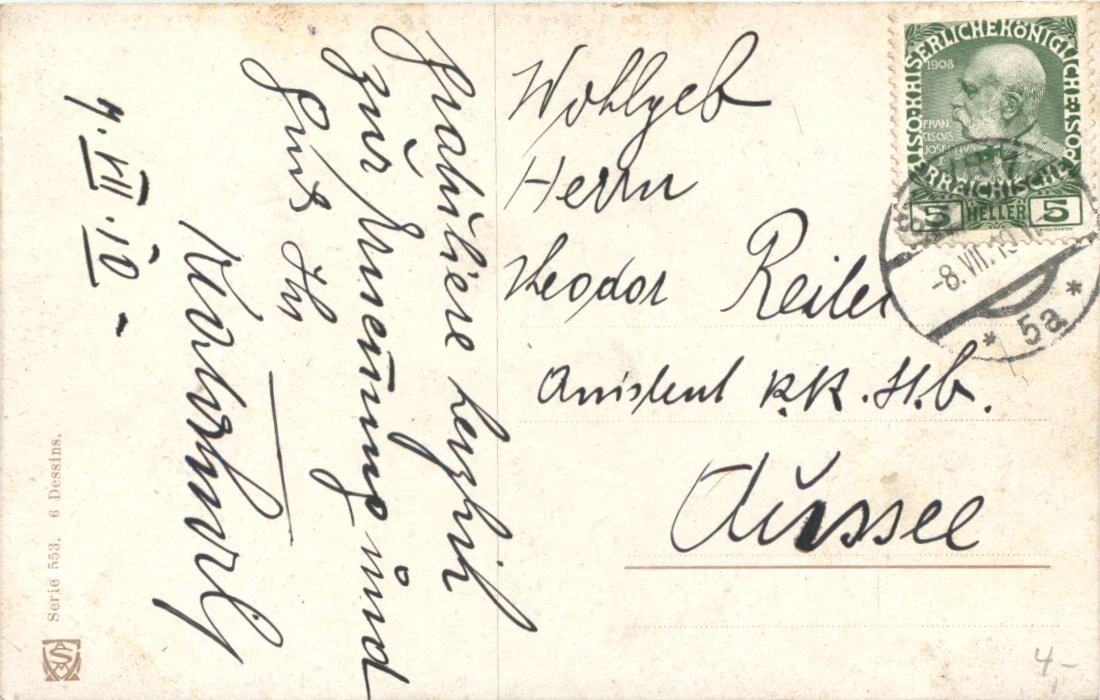 Gratuliere herzlich
zur Ernennung und
Gruß Ihr
7.VII.10-
Wohlgeb
Herrn
Theodor Reiler
Assistent k.k. St.b.
Aussee
KAISERLICHE KÖNIGLICHE ÖSTERREICHISCHE POST
1908
FRAN
CISCVS
JOSEPHVS I
5 HELLER 5
-8.VII.10
* 5a *
Serie 553. 6 Dessins.
4,-